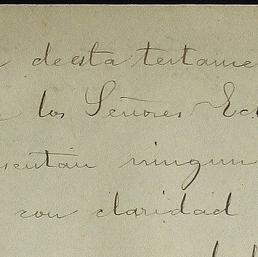 de esta testame
los Señores Ec
sentan ningun
con claridad